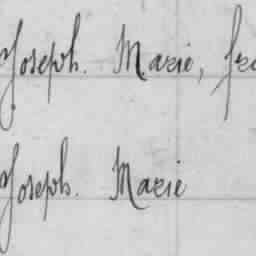 Joseph. Marie,
Joseph. Marie